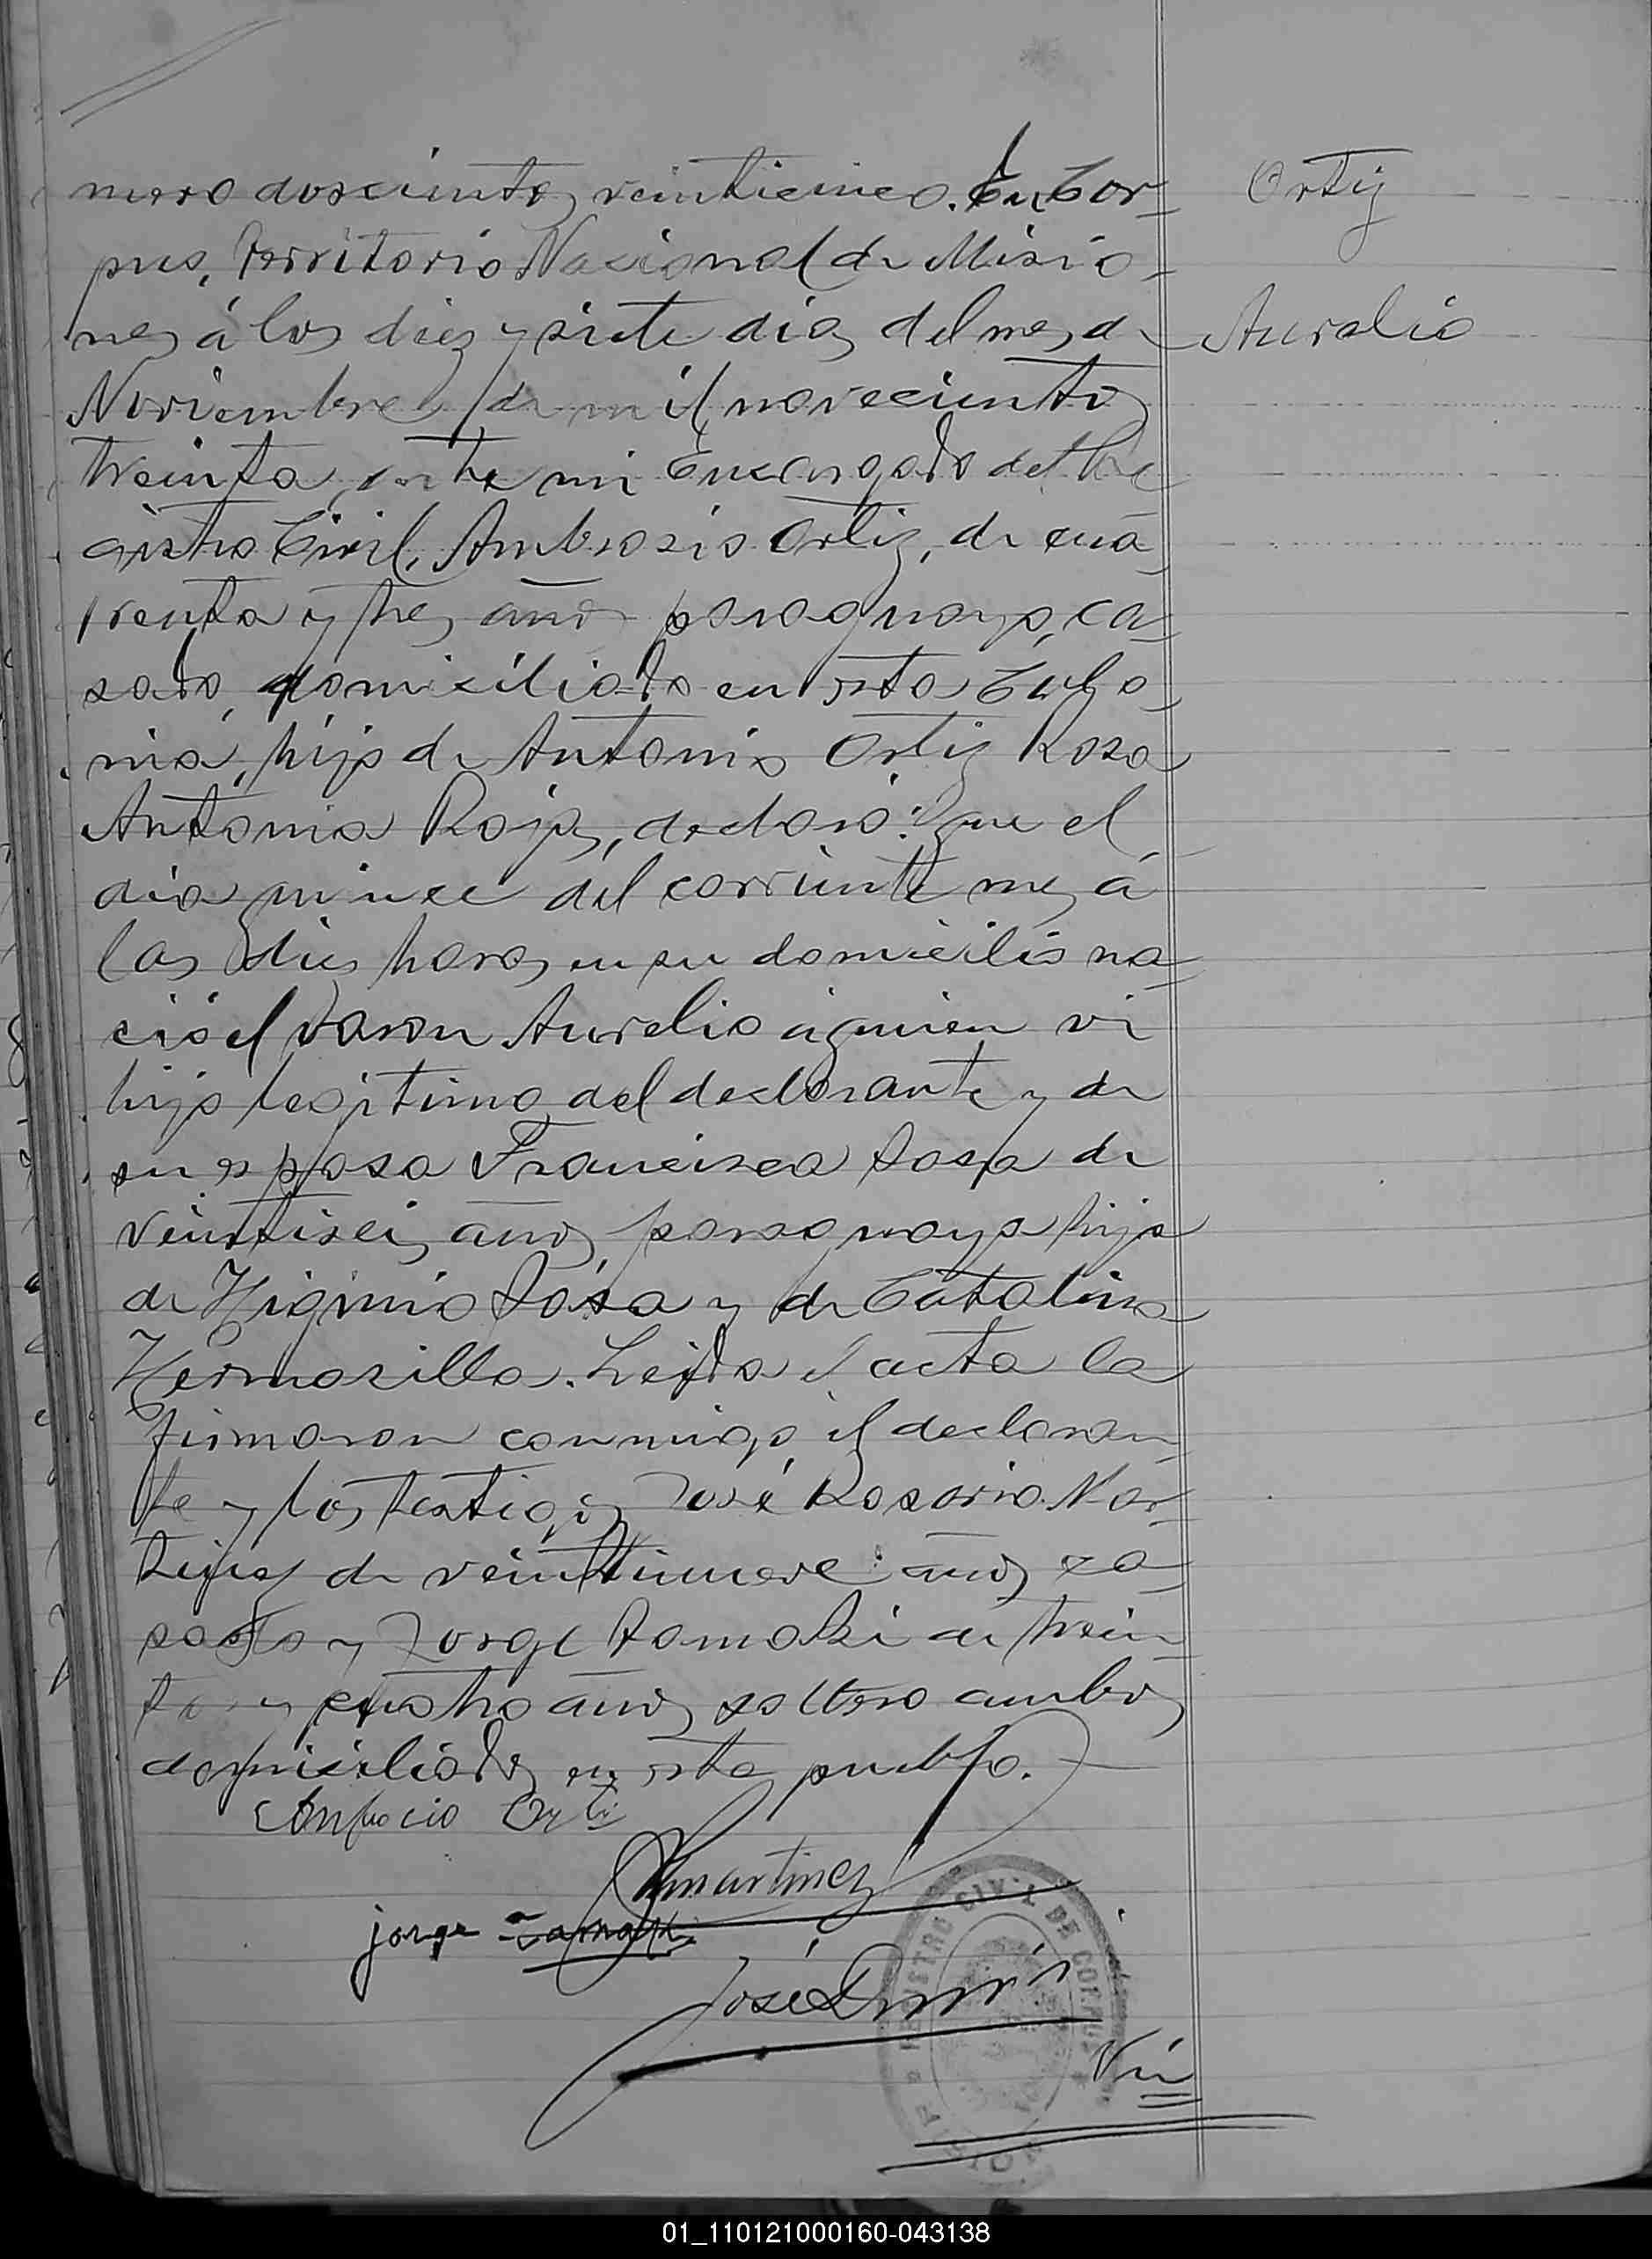 mero doscientos veinticinco. En Cor-
pus, Territorio Nacional de Misio-
nes á los diez y siete dias del mes de
Noviembre de mil novecientos
treinta, ante mi Encargado del Re
gistro Civil, Ambrosio Ortiz, de cua
renta y tres años paraguayo, ca-
sado, domiciliado en esta Colo-
nia, hijo de Antonio Ortiz Rosa
Antonia Rojas, declaró: Que el
dia quince del corriente mes á
las dies horas en su domicilio na-
ció el varon Aurelio á quien vi
hijo legitimo del declarante y de
su esposa Francisca Sosa de
veintiseis años paraguaya hija
de Higinio Sosa y de Catalina
Hermosilla. Leida el acta la
firmaron conmigo el declaran
te y los testigos José Rosario Mar-
tinez de veintinueve años ca-
sado y Jorge Samaki de trein
ta y cuatro años soltero ambos
domiciliados en este pueblo.
Ortiz
Aurelio
Ambrocio Orti
Martinez
jorge
José
REGISTRO CIVIL DE CORPUS